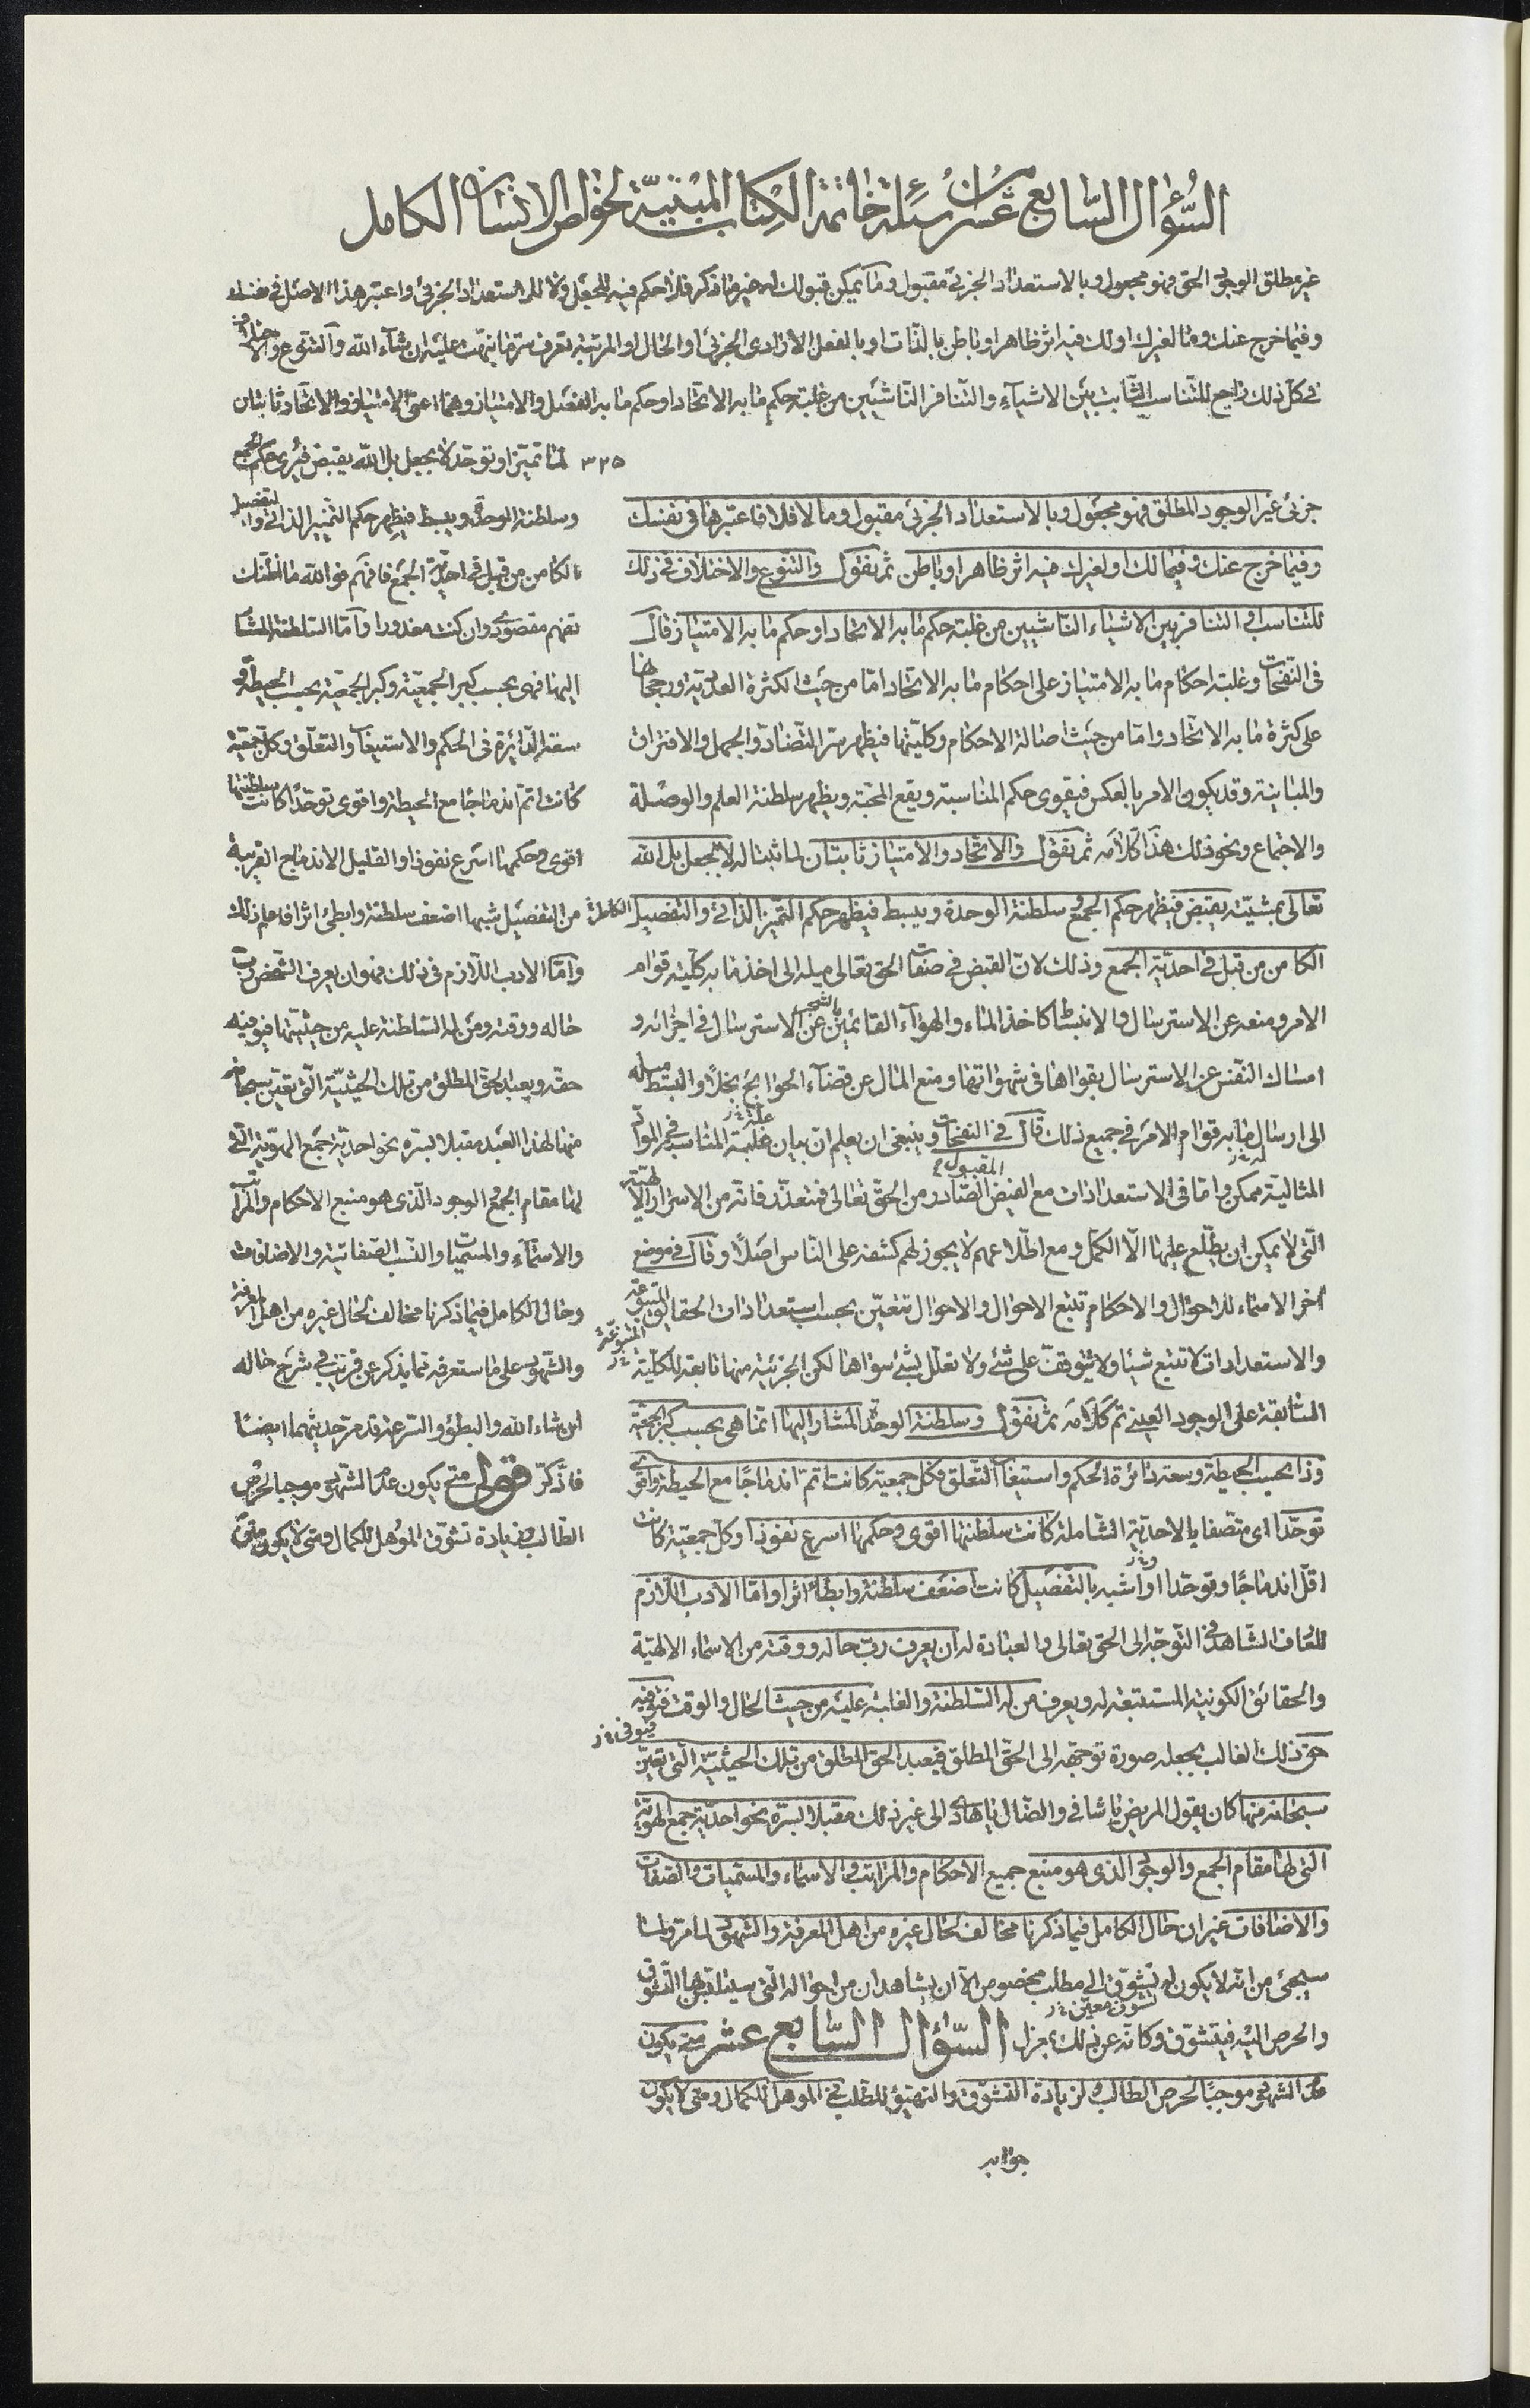 السُّؤال السّابع عشر من أسئلة خاتمة الكتاب المبنيّة لخواص الانسان الكامل
غير مطلق الوجود الحق فهو مجعول وبالاستعداد الجزئي مقبول وما يمكن قبولك له خير مما ذكر فلا حكم فيه للجعل ولا للاستعداد الجزئي واعتبر هذا الاصل في نفسك
وفيما خرج عنك ومما لغيرك اولك فيه اثر ظاهر او باطن بالذات او بالفعل الارادي الجزئي او الحال او المرتبة تعرف سر ما نبهت عليه ان شاء الله والتنوع والاختلاف
في كل ذلك راجع للتناسب الثابت بين الاشياء والتنافر الناشيين من غلبة حكم ما به الاتحاد او حكم ما به الفصل والامتياز وهما اعني الامتياز والاتحاد ثابتان
لما تميز او توحد لا بجعل بل الله يقبض فيرى حكم الجمع
٣٢٥
جزئي غير الوجود المطلق فهو مجعول وبالاستعداد الجزئي مقبول وما لا فلا فاعتبرها في نفسك
وفيما خرج عنك وفيما لك او لغيرك فيه اثر ظاهر او باطن ثم نقول والتنوع والاختلاف في ذلك
للتناسب او التنافر بين الاشياء الناشيين من غلبة حكم ما به الاتحاد او حكم ما به الامتياز قال
في النفحات وغلبة احكام ما به الامتياز على احكام ما به الاتحاد اما من حيث الكثرة العددية ورجحانها
على كثرة ما به الاتحاد واما من حيث اصالة الاحكام وكليتها فيظهر سر التضاد والجهل والافتراق
والمباينة وقد يكون الامر بالعكس فيقوى حكم المناسبة ويقع المحبة ويظهر سلطنة العلم والوصلة
والاجتماع ونحو ذلك هذا كلامه ثم نقول والاتحاد والامتياز ثابتان لما ثبتا له لا بجعل بل الله
تعالى بمشيته يقبض فيظهر حكم الجمع و سلطنة الوحدة ويبسط فيظهر حكم التميز الذاتي والتفصيل
الكامن من قبل في احدية الجمع وذلك لان القبض في صفات الحق تعالى ميله الى اخذ ما به كلية قوام
الامر ومنعه عن الاسترسال والانبساط كاخذ الماء والهواء القائمين بالشجر عن الاسترسال في اجزائه و
امساك النفس عن الاسترسال بقواها في شهواتها ومنع المال عن قضاء الحوائج بخلا والبسط ميله
الى ارسال ما به قوام الامر في جميع ذلك قال في النفحات وينبغي ان يعلم ان بيان علة غلبة المناسب في المواد
المثالية ممكن واما في الاستعدادات مع الفيض المقبول الصادر من الحق تعالى فمتعذر فانه من الاسرار الالهية
التي لا يمكن ان يطلع عليها الا الكمل ومع اطلاعهم لا يجوز لهم كشفه على الناس اصلا وقال في موضع
اخر الاسماء للاحوال والاحكام تتبع الاحوال والاحوال تتعين بحسب استعدادات الحقايق المتبوعة
والاستعدادات لا تتبع شيئا ولا يتوقف على شيء ولا تعلل بشيء سواها لكن الجزئية منها تابعة للكلية
السابقة على الوجود العيني تم كلامه ثم نقول وسلطنة الوحدة المشار اليها انما هي بحسب كبر الجمعية
وذا بحسب الحيطة وسعة دائرة الحكم واستيفاء التعلق فكل جمعية كانت اتم اندماجا مع الحيطة واقوى
توحدا اى متصفا بالاحدية الشاملة كانت سلطنتها اقوى وحكمها اسرع نفوذا وكل جمعية كانت
اقل اندماجا وتوحدا او اشبه بالتفصيل كانت اضعف سلطنة وابطأ اثرا واما الادب اللازم
للعارف الشاهد في التوجه الى الحق تعالى والعبادة له ان يعرف رب حاله ووقته من الاسماء الالهية
والحقائق الكونية المستتبعة له ويعرف من له السلطنة والغلبة عليه من حيث الحال والوقت فيوفيه
حق ذلك الغالب بجعله صورة توجهه الى الحق المطلق فيعبد الحق المطلق من تلك الحيثية التي تعين
سبحانه منها كان يقول المريض يا شافي والضال يا هادى الى غير ذلك مقبلا بسره نحو احدية جمع الهوية
التي لها مقام الجمع والوجود الذى هو منبع جميع الاحكام والمراتب والاسماء والمسميات والصفات
والاضافات غير ان حال الكامل فيما ذكرنا مخالف لحال غيره من اهل المعرفة والشهود لما مر ولما
سيجئ من انه لا يكون له تشوق الى مطلب مخصوص الا ان يشاهد ان من احواله التي سيتلبس بها التشوق
والحرص اليه فيتشوق وكانه عن ذلك بمعزل السّؤال السّابع عشر متى يكون
عدم الشهود موجبا لحرص الطالب و لزيادة التشوق والتهيؤ للطلب في المؤهل للكمال ومتى لا يكون
جوابه
وسلطنة الوحدة ويبسط فيظهر حكم التميز الذاتي والتفصيل
الكامن من قبل في احدية الجمع فافهم فوالله ما اظنك
تفهم مقصودى وان كنت معذورا واما السلطنة المشار
اليها فهى بحسب كبر الجمعية وكبر الجمعية بحسب الحيطة و
سعة الدائرة في الحكم والاستيفاء والتعلق وكل جمعية
كانت اتم اندماجا مع الحيطة واقوى توحدا كانت سلطنتها
اقوى وحكمها اسرع نفوذا والقليل الاندماج القريبة
من التفصيل شبها اضعف سلطنة وابطئ اثرا فاعلم ذلك
واما الادب اللازم في ذلك فهو ان يعرف الشخص رب
حاله ووقته ومن له السلطنة عليه من حيثيتها فيوفيه
حقه ويعبد الحق المطلق من تلك الحيثية التي تعين سبحانه
منها لهذا العبد مقبلا بسره نحو احدية جمع الهوية التي
لها مقام الجمع والوجود الذى هو منبع الاحكام والمراتب
والاسماء والمسميات والنسب الصفاتية والاضافات
وحال الكامل فيما ذكرنا مخالف لحال غيره من اهل المعرفة
والشهود على ما ستعرفه مما يذكر عن قريب في شرح حاله
ان شاء الله والبطؤ والسرعة قد مر حديثهما ايضا
فاذكر قوله متى يكون عدم الشهود موجبا لحرص
الطالب وزيادة تشوق المؤهل للكمال ومتى لا يكون